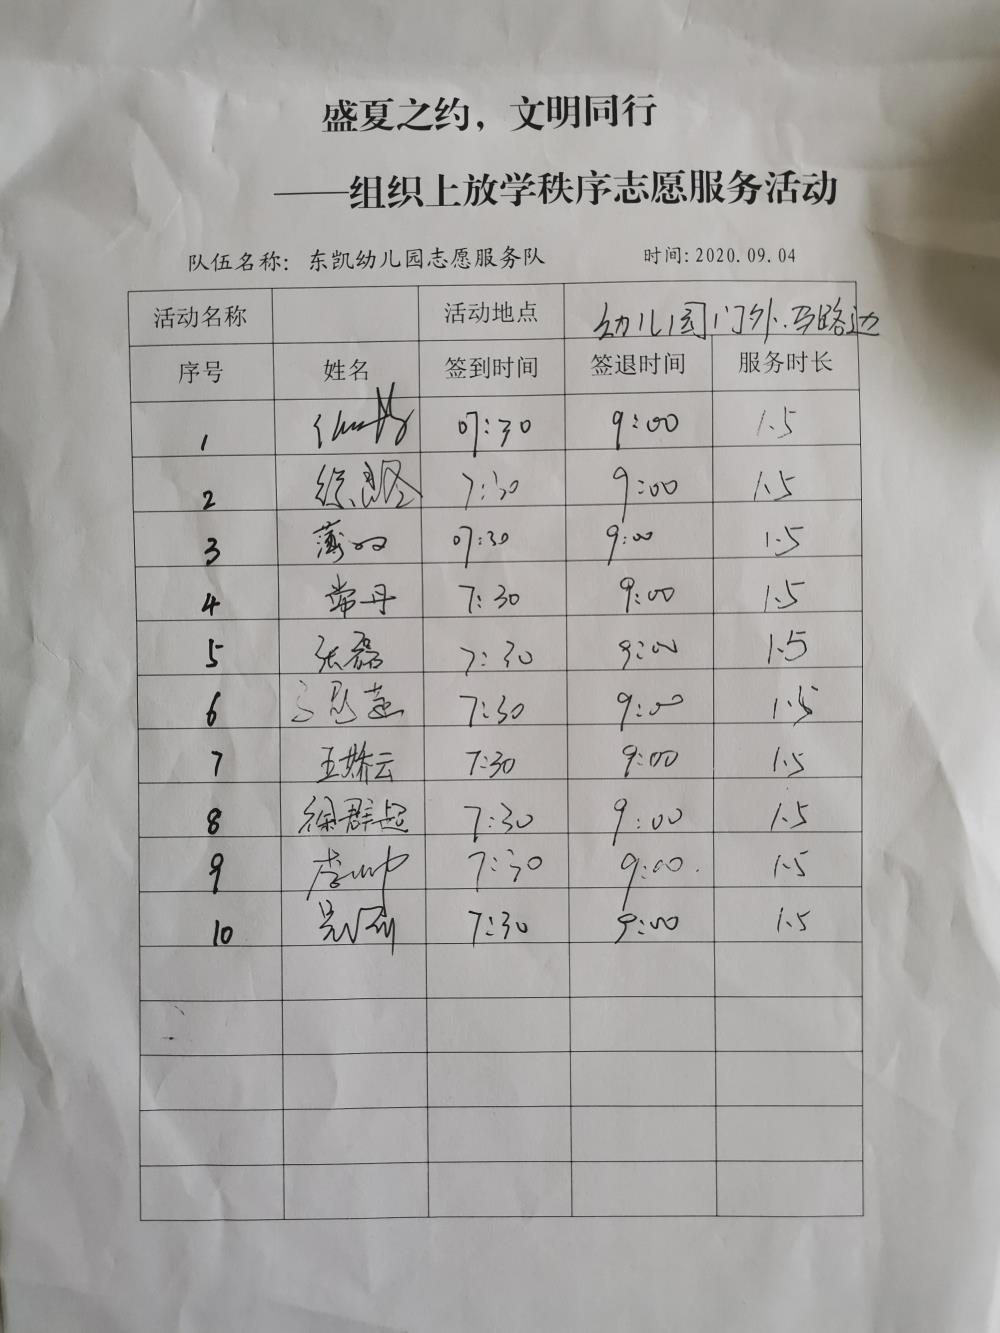 盛夏之约，文明同行
——组织上放学秩序志愿服务活动
队伍名称：东凯幼儿园志愿服务队 时间：2020.09.04
活动名称 活动地点 幼儿园门外.马路边
序号 姓名 签到时间 签退时间 服务时长
1 07:30 9:00 1.5
2 7:30 9:00 1.5
3 07:30 9:00 1.5
4 常丹 7:30 9:00 1.5
5 张磊 7:30 9:00 1.5
6 7:30 9:00 1.5
7 王娇云 7:30 9:00 1.5
8 徐群超 7:30 9:00 1.5
9 7:30 9:00. 1.5
10 7:30 9:00 1.5